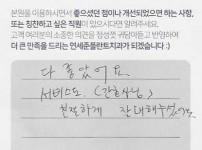 본원을 이용하시면서 좋으셨던 점이나 개선되었으면 하는 사항,
또는 칭찬하고 싶은 직원이 있으시다면 알려주세요.
고객 여러분의 소중한 의견을 정성껏 귀담아듣고 반영하여
더 큰 만족을 드리는 연세준플란트치과가 되겠습니다 :)
다 좋았어요
서비스도 (간호사님)
친절하게 잘대해주셨어요